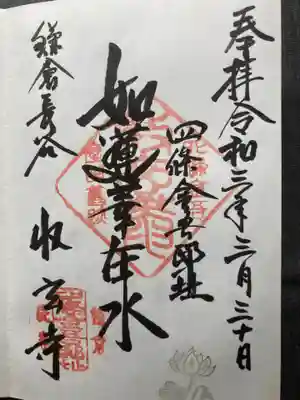 奉拝令和三年三月三十日
四條金吾邸址
如蓮華在水
鎌倉長谷
収玄寺